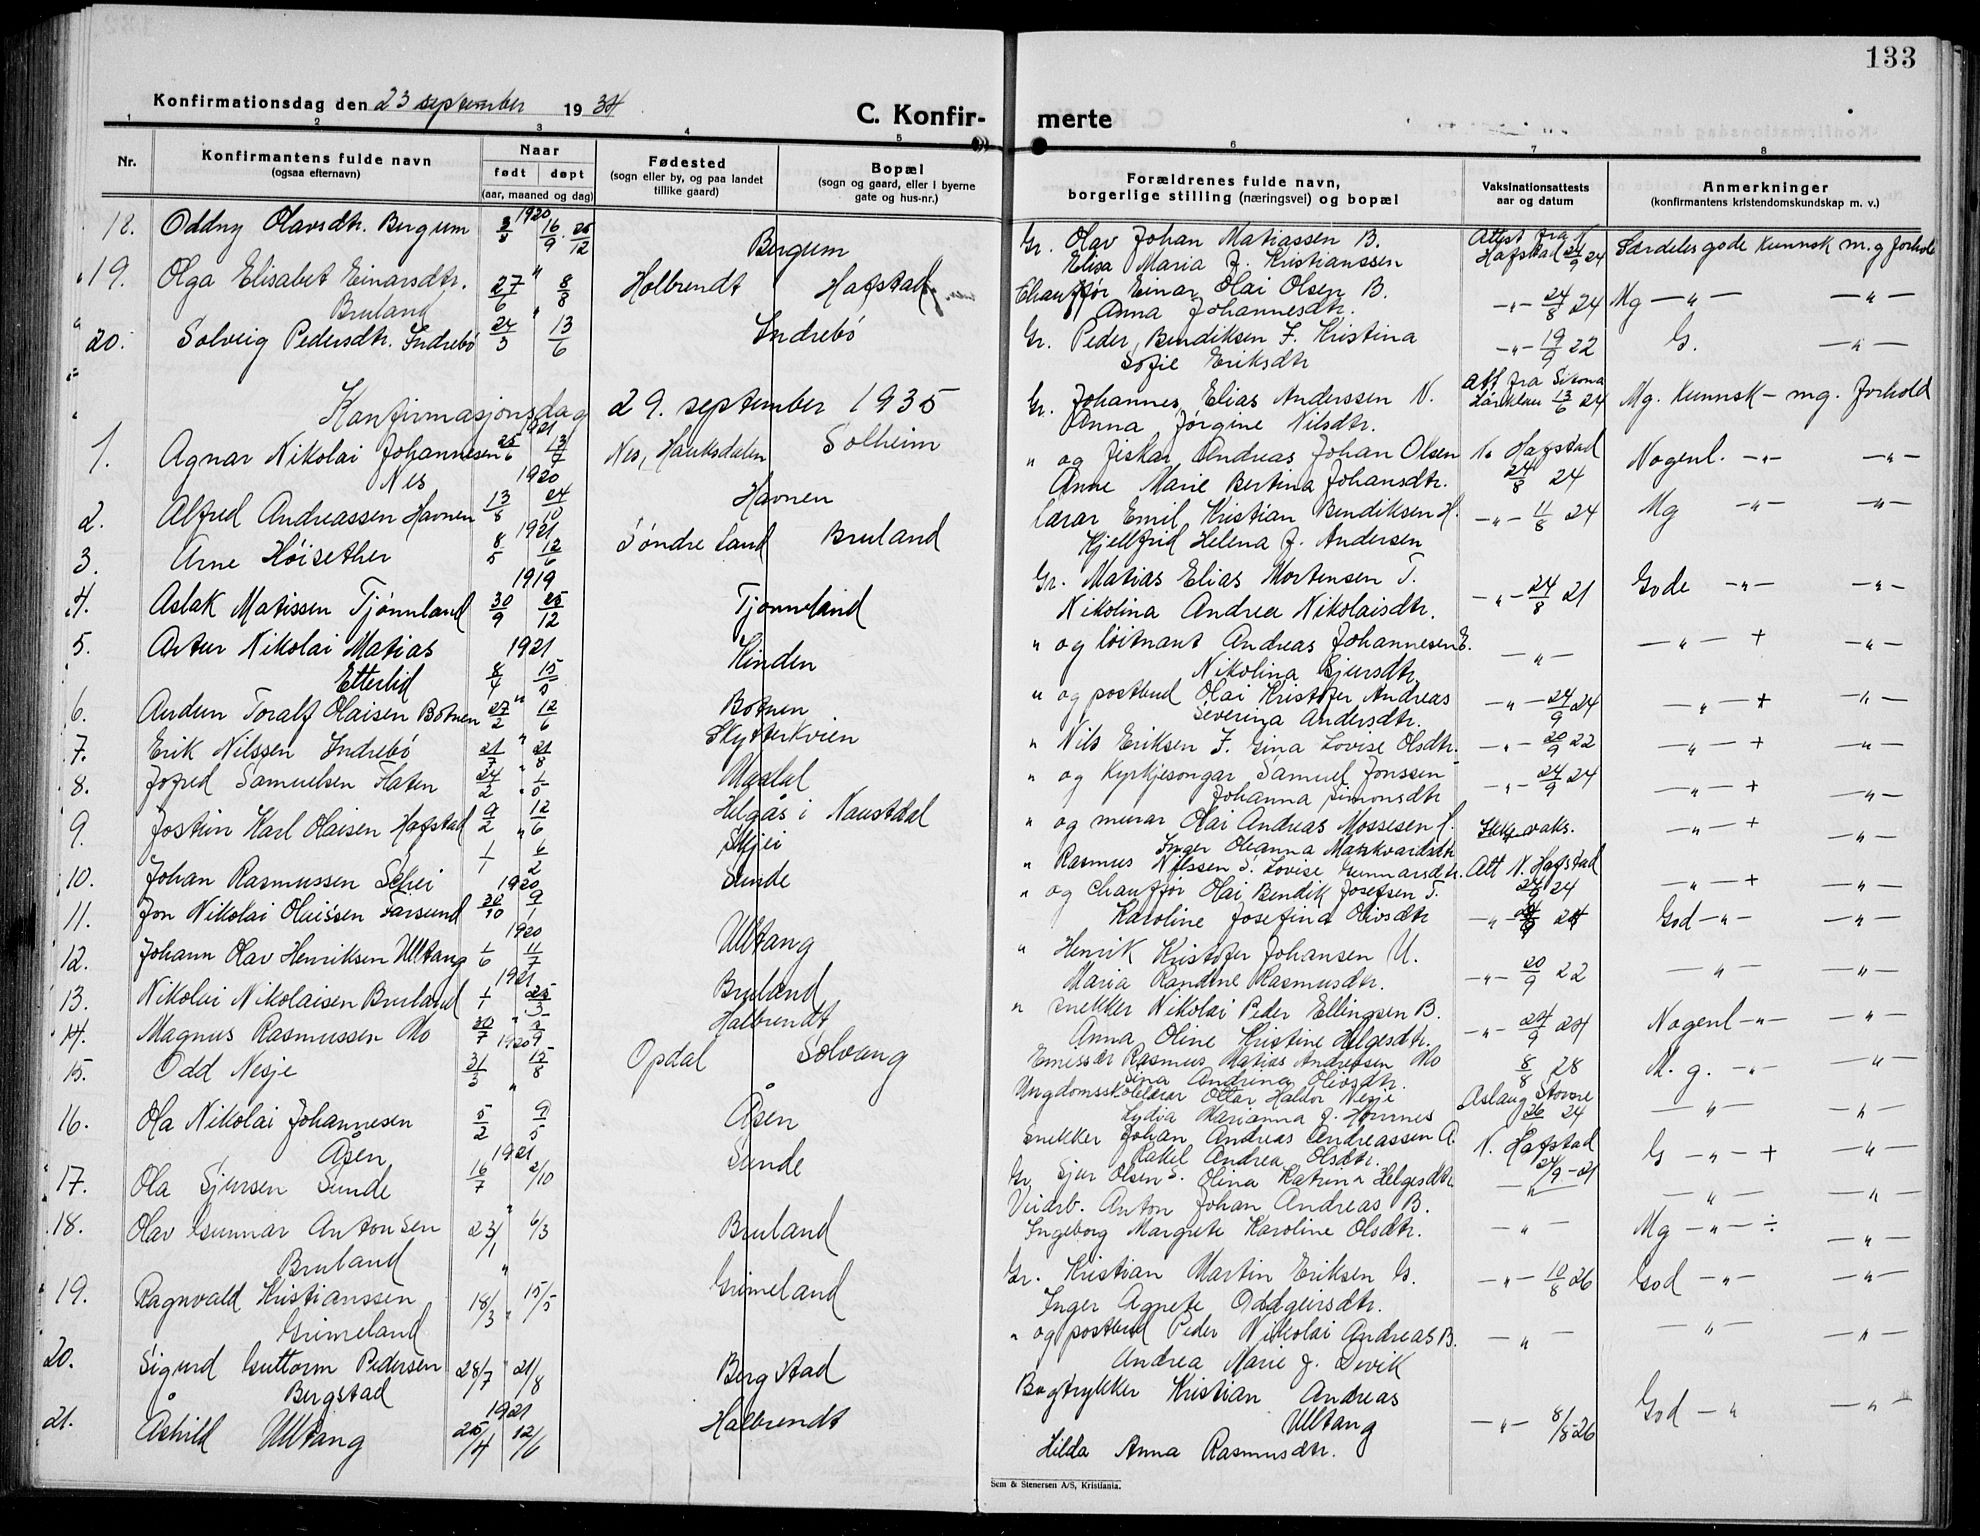 133
Konfirmationsdag den 23 september 1934
C. Konfir-
merte
1 2 3 4 5 6 7 8
Nr.
Konfirmantens fulde navn
(ogsaa efternavn)
Naar
født døpt
(aar, maaned og dag)
Fødested
(sogn eller by, og paa landet
tillike gaard)
Bopæl
(sogn og gaard, eller i byerne
gate og hus-nr.)
Forældrenes fulde navn,
borgerlige stilling (næringsvei) og bopæl
Vaksinationsattests
aar og datum
Anmerkninger
(konfirmantens kristendomskundskap m. v.)
18. Oddny Olavsdtr. Bergum 1920 16/9 26/12 Bergum Gr. Olav Johan Matiassen B. Attest fra N. Særdeles gode kunnsk m.g forhold
Elisa Maria f. Kristianssen Hafstad 24/9 24
19. Olga Elisabet Einarsdtr. " 27/6 8/8 Holbrendt Hafstad Chauffør Einar Olai Olsen B. -"- 24/8 24 Mg -"- -"-
Bruland Anna Johannesdtr.
20. Solveig Pedersdtr. Indrebö " 24/3 13/6 Indrebö Gr. Peder Bendiksen I. Kristina -"- 19/9 22 G. -"-
Sofie Eriksdtr
Konfirmasjonsdag 29. september 1935
1. Agnar Nikolai Johannesen 1921 25/6 Nes, Haukedalen Solheim Gr. Johannes Elias Anderssen N. Att fra Mg. kunnsk - mg. forhold
Nes Anna Jørgine Nilsdtr. 13/6 24
2. Alfred Andreassen Havnen 1920 13/8 24/10 Havnen " og fiskar Andreas Johan Olsen N. Hafstad Nogenl. -"- -"-
Anne Marie Bertina Johansdtr. 24/8 24
3. Arne Höisether 1921 8/5 12/6 Söndre Land Bruland lærar Emil Kristian Bendiksen H. -"- 11/8 24 Mg -"- -"-
Kjellfrid Helena f. Andersen
4. Aslak Matissen Tjönnland 1919 30/9 25/12 Tjonnland Gr. Matias Elias Mortensen T. -"- 24/8 21 Gode -"- -"-
Nikolina Andrea Nikolaisdtr.
5. Artur Nikolai Matias 1921 Hinden " og löitnant Andreas Johannesen E. -"- -"- + -"-
Etterlid 8/4 15/5 Nikolina Sjursdtr.
6. Anders Toralf Olaisen Botnen " 27/2 12/6 Botnen " og postbud Olai Kristofer Andreas -"- 24/9 24 -"- + -"-
Severina Andersdtr.
7. Erik Nilssen Indrebö " 21/7 21/8 Skytterkvien " Nils Eriksen I. Gina Lovise Olsdtr. -"- 20/9 22 -"- + -"-
8. Jofred Samuelsen Flaten " 24/2 1/5 " og Kyrkjesongar Samuel Jonssen -"- 24/9 24 -"- + -"-
Johanna Simonsdtr
9. Jostein Karl Olaisen Hafstad " 9/2 12/6 Helgås i Naustdal " og murar Olai Andreas Mossesen H. Ikke vaks. -"- + -"-
Inger Oleanna Markvardsdtr
10. Johan Rasmussen Schei 1/1 6/2 Skjei " Rasmus Nilssen S. Lovise Gunnarsdtr. Att N. Hafstad -"- + -"-
24/9 24
11. Jon Nikolai Olaissen Farsund 1920 20/10 9/1 Sunde " og Chauffør Olai Bendik Josefsen F. -"- 24 God -"- -"-
Karoline Josefina Olivsdtr
12. Johann Olav Henriksen Ulltang 1920 1/6 11/7 Ulltang " Henrik Kristofer Johansen U. -"- 20/9 22 -"- -"-
Maria Randine Rasmusdtr.
13. Nikolai Nikolaisen Bruland 1921 1/1 25/3 Bruland " snekker Nikolai Peder Ellingsen B. -"- 24/9 24 Nogenl -"- -"-
Anna Oline Kristine Helgesdtr.
14. Magnus Rasmussen Mo " 30/7 Halbrendt Emissær Rasmus Matias Andersen Mo 8/8 28 M. g. -"- -"-
Sina Andrina Olivsdtr.
15. Odd Nesje 1920 31/3 15/8 Opdal Solvang Ungdomsskolelærar Ottar Haldor Nesje Aslaug Stovne -"- -"-
Lydia Marianna f. Hornnes 26 24
16. Ola Nikolai Johannesen " 5/2 9/5 Åsen snekker Johan Andreas Andreassen A. N. Hafstad G -"- + -"-
Åsen Rakel Andrea Olsdtr. 24/9-21
17. Ola Sjursen Sunde 1921 16/7 2/10 Sunde Gr. Sjur Olsen S. Olina Katrina Helgesdtr. -"- -"- -"-
18. Olav Gunnar Antonsen " 23/1 6/3 Bruland Veiarb. Anton Johan Andreas B. -"- Mg -"- ÷ -"-
Bruland Ingeborg Margrete Karoline Olsdtr.
19. Ragnvald Kristianssen " 18/3 15/5 Grimeland Gr. Kristian Martin Eriksen G. -"- 10/8 26 God -"- -"-
Grimeland Inger Agnete Oddgeirsdtr.
20. Sigurd Guttorm Pedersen " 28/7 21/8 Bergstad " og postbud Peder Nikolai Andreas B. -"- -"- -"-
Bergstad Andrea Marie f. Devik
21. Åshild Ulltang 1921 25/4 12/6 Halbrendt Bogtrykker Kristian Andreas -"- 8/8-26 God -"- -"-
Ulltang
Hilda Anna Rasmusdtr.
Sem & Stenersen A/S, Kristiania.